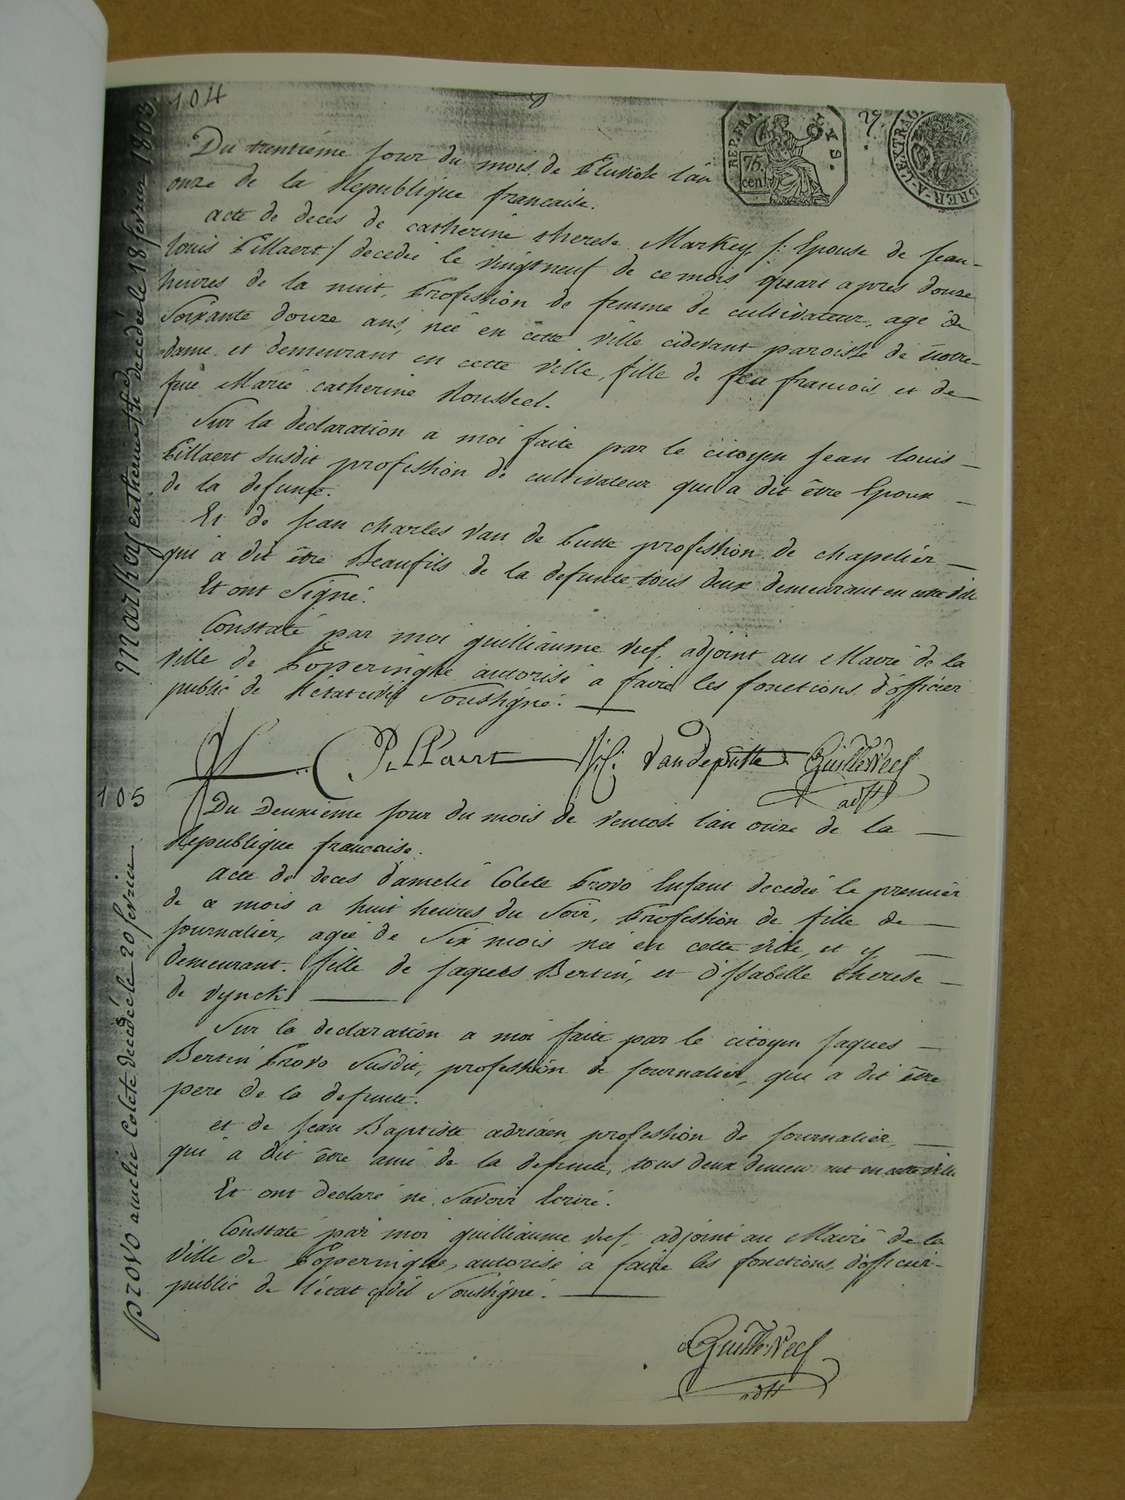 104
REP. FRA
75
cen
A.S.
29.
Du trentiéme Jour du mois de Pluviose L'an
onze de la Republique francaise.
acte de deces de catherine therese Markey /: Epouse de Jean-
Louis Pillaert / decedée le vingtneuf de ce mois quart apres douze
heures de la nuit, Profession de femme de cultivateur, agé de
Soixante douze ans, née en cette ville cidevant paroisse de Notre-
dame et demeurant en cette ville, fille de feu francois, et de
feue Marie catherine Roussel.
Sur la declaration a moi faite par le citoyen Jean Louis
Pillaert susdit profession de cultivateur qui a dit être Epoux
de la defunte.
Et de Jean Charles Van de Putte profession de chapelier
qui a dit être Beaufils de la defunte, tous deux demeurant en cette ville
Et ont Signé.
Constaté par moi guilliaume Neef, adjoint au Maire de la
ville de Poperinghe autorisé a faire les fonctions d'officier
public de l'état civil Soussigné.
Pillaert Vandeputte Guille Neef
adjt
Markey catherine the decedée le 18 fevrier 1803
105
Du Deuxieme Jour du mois de Ventose L'an onze de la
Republique francaise.
Acte de deces d'amelie Colete Provo Enfant decedée le premier
de ce mois a huit heures du Soir, Profession de fille de
Journalier, agée de Six mois née en cette ville, et y
demeurant. fille de Jaques Bertin, et d'Isabelle therese
de Vynck.
Sur la declaration a moi faite par le citoyen Jaques
Bertin Provo susdit, profession de Journalier, qui a dit être
pere de la defunte.
et de Jean Baptiste adriaen profession de Journalier
qui a dit être ami de la defunte, tous deux demeurant en cette ville
Et ont declaré ne Savoir Ecrire.
Constaté par moi guilliaume Neef, adjoint au Maire de la
Ville de Poperinghe, autorisé a faire les fonctions d'officier
public de l'état civil Soussigné.
Guille Neef
adjt
provo amelie Colete decedée le 20 fevrier